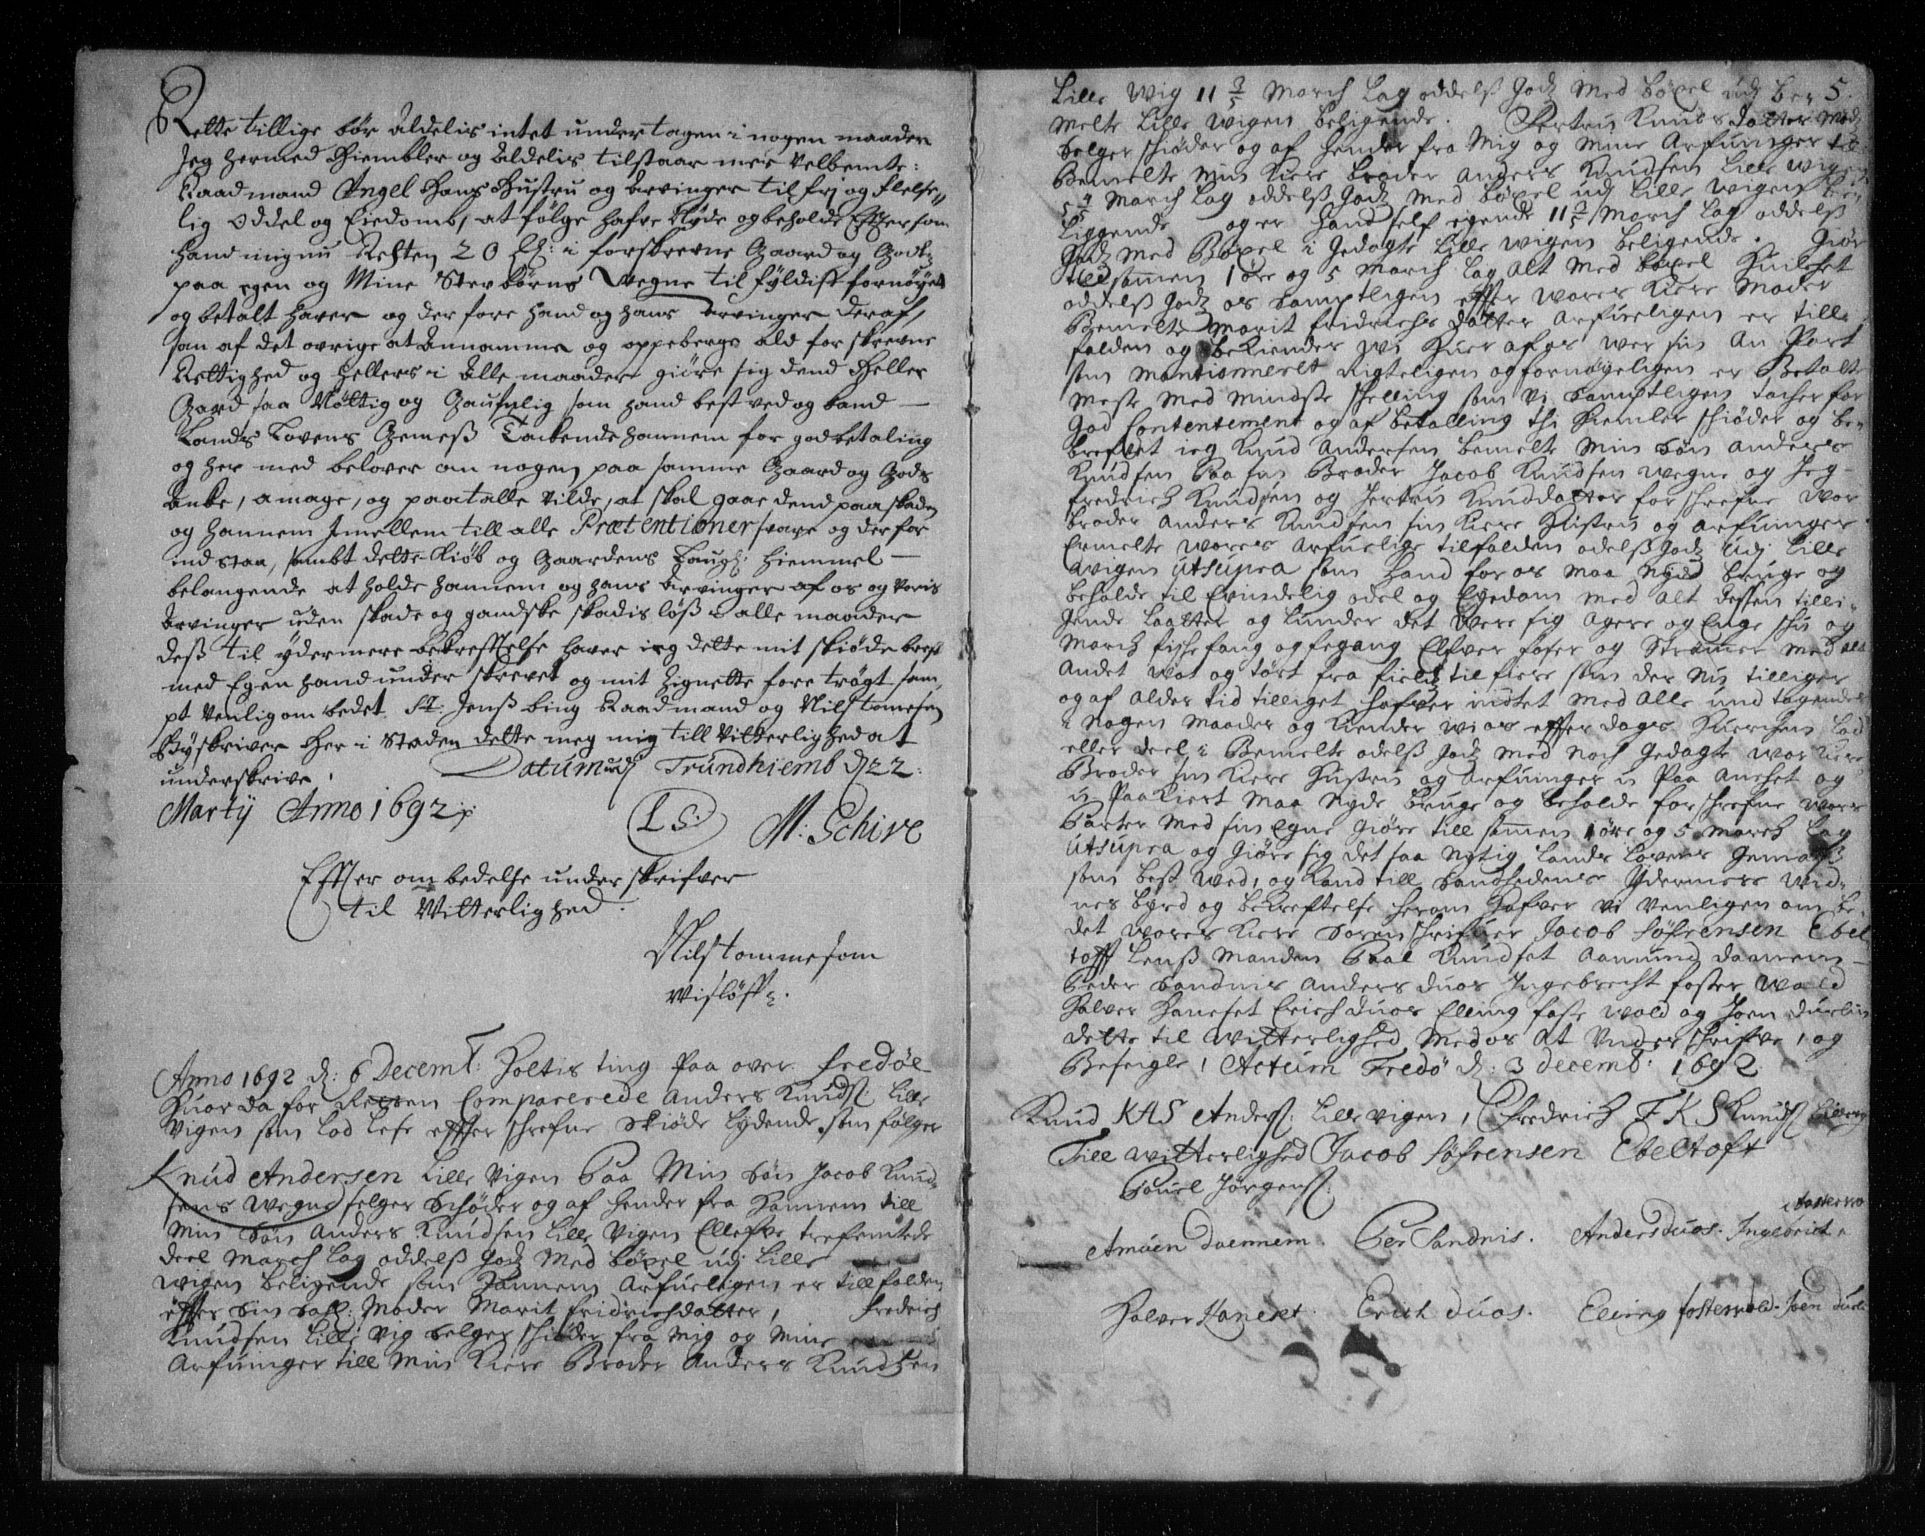 Rette tillige bør Aldelis intet undertagen i nogen maader
Jeg hermed Hiembler og Aldelis tilstaar meer Velbemte:
Raadmand Angel Hans Hustru og Arvinger til frj og Flelse„
lig Oddel og Eiedomb, at følge hafve Nyde og beholde Effter som
hand mig nu Resten i forskrevne Gaard og Godtz
paa egen og Mine Sterbørns Vegne til fyldist fornøyet
og betalt haver og der fore hand og hans Arvinger deraf
som af det ovrige at Annamme og oppeberge ald forskrevne
Rettighed og hellers i Alle maader giøre sig dend Heller
Gard saa Nøttig og Gaufnlig som hand best ved og kand
Lands Lovens Gemeß Tackende hannem for god betaling
og her med belover om nogen paa samme Gaard og Gods
Anke, Amage, og paatalle vilde, at skal gaae dend paaskaden
og hannem Imellem till alle Prætentioner svare og derfor
ind staa, sambt dette Kiøb og Gaardens hiemmel
belangende at holde hannem og hans Arvinger af os og voris
Arvinger uden skade og gandske skadisløß i alle maader
deß til ydermere bekrefftelse haver ieg dette mit skiøde bref
med Egen hand under skrevet og mit Zignette fore trøgt sam„
pt Venlig om bedet Sr: Jenß bing Raadmand og Nils tomesen
Byskriver Her i Staden dette meg mig till vitterlighed at
underskrive. Datum udj Trundhiemb d. 22:
Martij Anno 1692
(L S:) M: Schive
Effter om bedelse under skrifver
til Vitterlighed:
Nils tommesøn
Anno 1692 d: 6 Decemb: Holtis ting Paa over Fredøe
Huor da for Retten Comparerede Anders Knudß: Lille
Vigen som lod lese effter schrefne Skiøde lydende som følger
Knud Andersen Lille Vigen Paa Min Søn Jacob Knud„
sens Wegne selger Schøder og af hender fra Hannem till
Min Søn Anders Knudsen Lille Vigen Ellefve trefemtede
deel March Lag oddelß Godz Med böxel udj Lille
wigen beligende som Hannem Arfueligen er tillfalden
effter sin Sahl: Moder Marit Fridrichsdatter, Fredrich
Knudsen Lille Vig Selger schiøder fra Mig og Mine
Arfuinger till Min Kiere Broder Anders Knudtzen
Lille Wig 11 3/5 March Lag oddelß Godz Med böxel udj be 5.
melte Lille Wigen beligende. Sertru Knuds datter
selger schiøder og af hender fra Mig og Mine Arfuinger till
Bemelte Min Kiere Broder Anders Knudsen Lille wigen
5 4/5 March Lag oddelß Godz Med böxel udj Lille Wigen be
liggende og er Hand self egende 11 3/5 March Lag oddelß
Godz Med Böxel i Gedagte Lille wigen beligende. Giør
tilsammen 1 øre og 5 March Lag Alt Med böxel Huilchet
oddelß Godz os samptligen effter Wores Kiere Moder
Bemelte Marit Fridrichs datter Arfueligen er till
falden og bekiender wi Huer af os wor sin An Part
som Mentionneret Rigteligen og fornøyeligen er Betalt
Meste Med Mindste schelling som Vi samptligen tacher for
God Contentement og af betalling thi Hiemler schiøder og be„
brefvet ieg Knud Andersen bemelte Min Søn Anders
Knudsen Paa sin Broder Jacob Knudsen wegne og Jeg
Fredrich Knudsen og Sertru Knuddatter for schrefne Wor
broder Anders Knudsen sin Kiere Hustru og Arfuinger
Ermelte Wores Arfuelige tilfalden odelß Godz udj Lille
wigen utsupra som Hand for os Maa Nyde bruge og
beholde til Evindelig odel og Eyedom Med Alt dessen tilli„
gende Laatter og Lunder det Were sig Agere og Enge schu og
March fischefang og fegang Elfver foser og Strømer Med Alt
Andet Wot og tørt fra field til fiere som der Nu tilligger
og af Alder tid tilliget hafver indtet Med Alle und tagendes
i Nogen Maader og Kiender wi os effter dags Huerchen Lod
eller deel i Bemelte odelß Godz Med Noch Gedagte wor Kiere
Broder sin Kiere Hustru og Arfuinger u Paa Anchet og
u Paa Kiert Maa Nyde bruge og beholde for schrefne wore
Parter Med sin Egne Giøre till samen 1 øre og 5 March Lag
Utsupra og Giøre sig det saa Nytig Lands Lovens Gemæß
som best Wed, og Kand till Sandhedens Ydermere Wid„
nes byrd og bekreftelse herom hafver Vi Venligen om be„
det Wores Kiere Sorenschrifuer Jacob Søfrensen Ebel
tofft Lenß Manden Paal Knudset Aamund daenem
Peder Sandnis Anders duos Ingebrecht foster Wold
Halver Haneset Erich duos Elling foste wold og Joen duelin
dette til Witterlighed Med os At Under schrifve, og
Beseigle, Actum Fredø d: 3 decemb: 1692
Knud KAS Anderß: Lille vigen, Fredrich F K S Knudß Lillevig
Till witterlighed Jacob Søfrensen Ebeltoft
Pouel Jørgenß:
Amuen Daennem. Per Sandnis. Anders duos. Ingebricht fosterwo
Halver Haneset. Erich duos. Elling fosterwold. Joen duelin